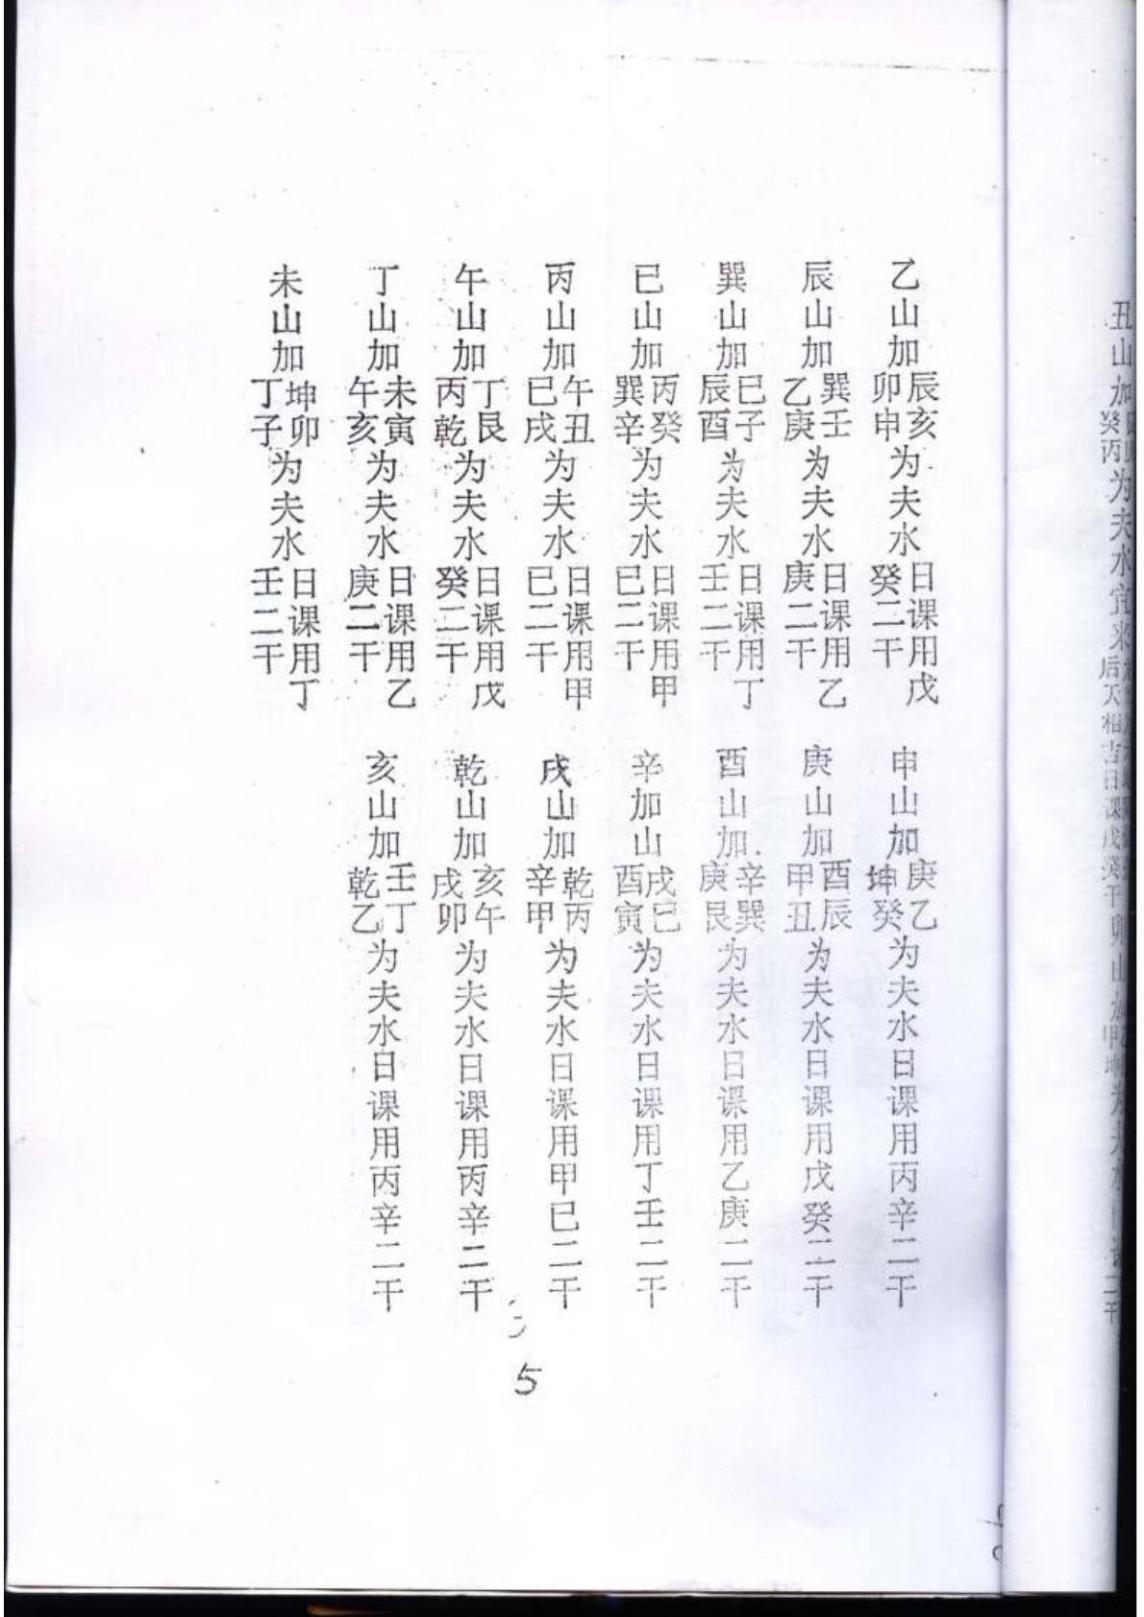 乙山加辰亥卯申为夫水日课用戊癸二干
申山加庚乙坤癸为夫水日课用丙辛二干
辰山加巽壬乙庚为夫水日课用乙庚二干
庚山加酉辰甲丑为夫水日课用戊癸二干
巽山加巳子辰酉为夫水日课用丁壬二干
酉山加辛巽庚艮为夫水日课用乙庚二干
巳山加丙癸巽辛为夫水日课用甲巳二干
辛加山戌巳酉寅为夫水日课用丁壬二干
丙山加午丑巳戌为夫水日课用甲巳二干
戌山加乾丙辛甲为夫水日课用甲巳二干
午山加丁艮丙乾为夫水日课用戊癸二干
乾山加亥午戌卯为夫水日课用丙辛二干
丁山加未寅午亥为夫水日课用乙庚二干
亥山加壬丁乾乙为夫水日课用丙辛二干
未山加坤卯丁子为夫水日课用丁壬二干
5